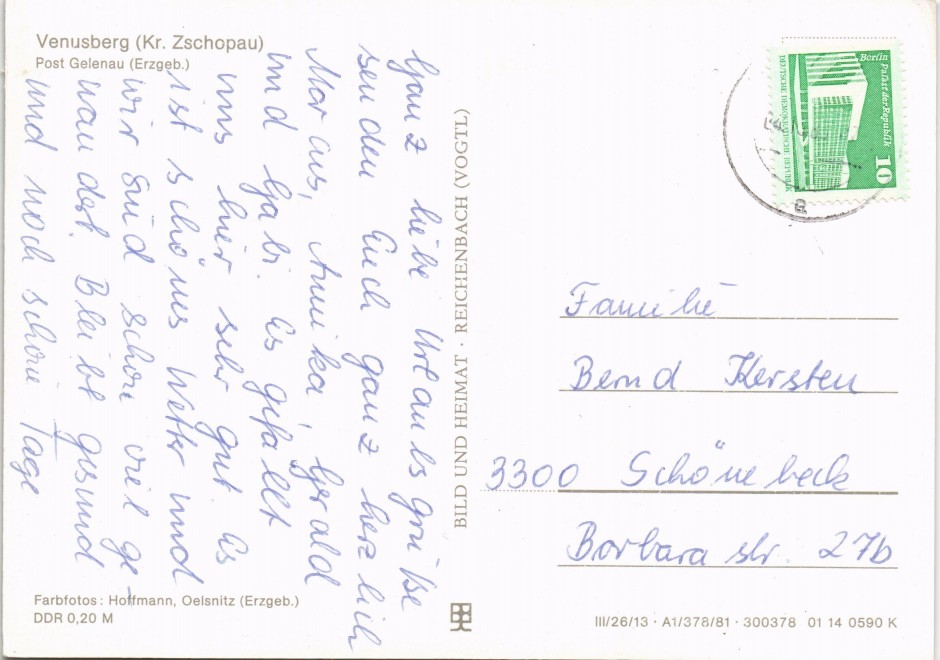 Venusberg (Kr. Zschopau)
Post Gelenau (Erzgeb.)
Ganz liebe Urlaubsgrüße
senden Euch ganz herzlich
Marcus, Annika, Gerald
und Gabi. Es gefällt
uns hier sehr gut. Es
ist schönes Wetter und
wir sind schon viel ge-
wandert. Bleibt gesund
und noch schöne Tage
BILD UND HEIMAT · REICHENBACH (VOGTL)
Berlin
Palast der Republik
DEUTSCHE DEMOKRATISCHE REPUBLIK
10
Familie
Bernd Kersten
3300 Schönebeck
Barbarastr. 27b
Farbfotos: Hoffmann, Oelsnitz (Erzgeb.)
DDR 0,20 M
III/26/13 · A1/378/81 · 300378 01 14 0590 K